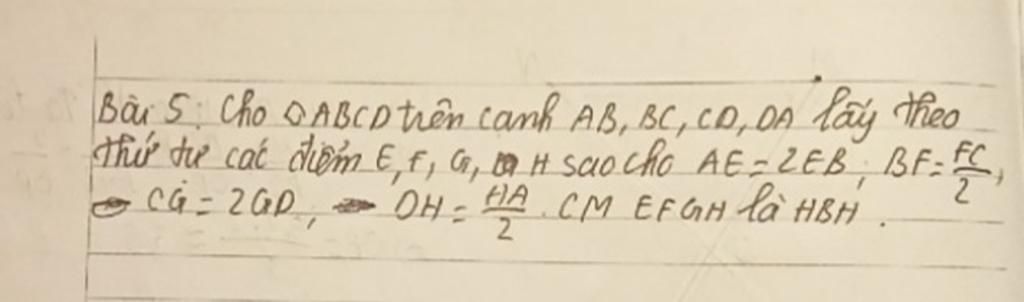 Bài 5: Cho ◇ABCD trên canh AB, BC, CD, DA lấy theo
thứ tự các điểm E, F, G, H sao cho AE = 2EB, BF = FC/2,
CG = 2GD, DH = HA/2. CM EFGH là HBH.